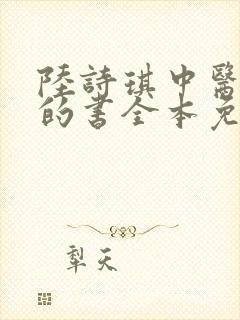 陸詩琪中醫
的書全本免
犁天